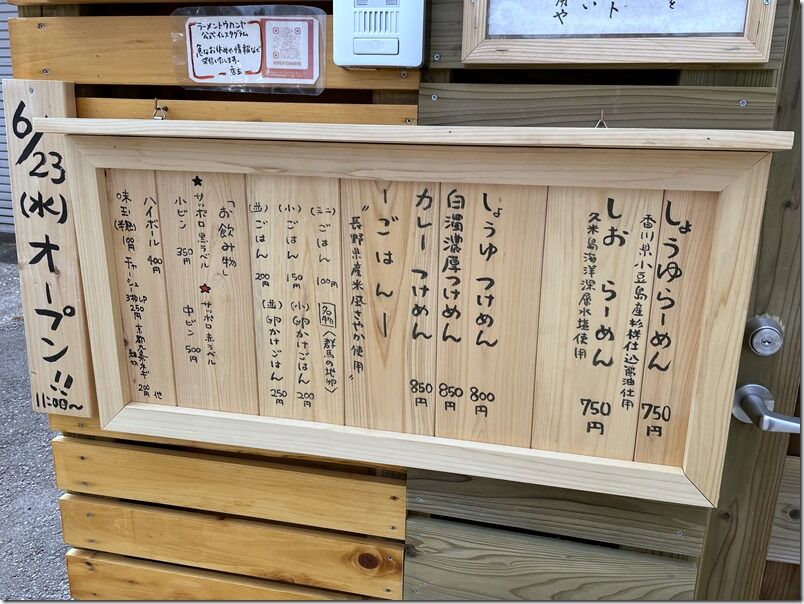 しょうゆらーめん 750円
香川県小豆島産杉樽仕込醤油使用
しお らーめん 750円
久米島海洋深層水塩使用
しょうゆ つけめん 800円
白濁濃厚つけめん 850円
カレー つけめん 850円
ーごはんー
"長野県産米風さやか使用
(ミニ)ごはん 100円
(小)ごはん 150円
(並)ごはん 200円
名物 〈群馬の地卵〉
(小)卵かけごはん 200円
(並)卵かけごはん 250円
「お飲み物
★サッポロ黒ラベル
小ビン 350円
★サッポロ赤ラベル
中ビン 500円
ハイボール 400円
味玉(半熟) 100円 チャーシュー3枚 250円 京都九条ネギ 200円 他
6/23(水)オープン!!
11:00〜
ラーメントウカンヤ
公式インスタグラム
急なお休みや情報など
発信いたします。
店主